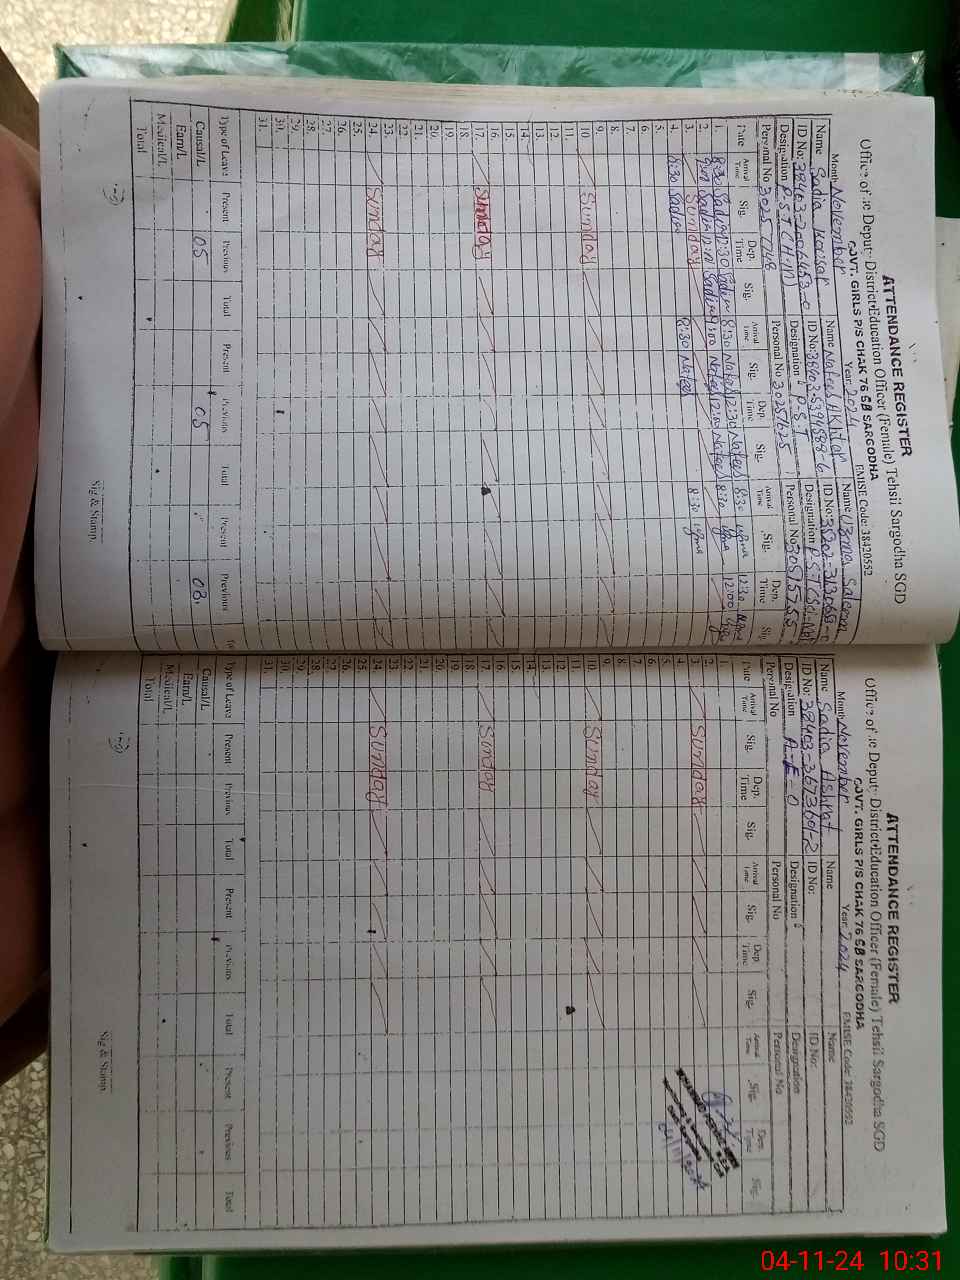 ATTENDANCE REGISTER
Office of the Deputy District Education Officer (Female) Tehsil Sargodha SGD
GOVT. GIRLS P/S CHAK 76 SB SARGODHA
Month November Year 2024 EMISE Code: 38420552
Name Sadia Kousar Name Nafees Akhtar Name Uzma Saleem
ID No: ID No: ID No:
Designation P.S.T Designation P.S.T Designation P.S.T
Personal No Personal No 30251625 Personal No 30515755
Date Arrival Time Sig. Dep. Time Sig. Arrival Time Sig. Dep. Time Sig. Arrival Time Sig. Dep. Time Sig.
1. 8:30 Sadia 12:30 Sadia 8:30 Nafees 12:30 Nafees 8:30 Uzma 12:30 Uzma
2. Sadia Sadia Nafees 12:00 Nafees 8:30 Uzma 12:00
3. Sunday
4. 8:30 Sadia 8:30 Nafees 8:30 Uzma
5.
6.
7.
8.
9.
10. Sunday
11.
12.
13.
14.
15.
16.
17. Sunday
18.
19.
20.
21.
22.
23.
24. Sunday
25.
26.
27.
28.
29.
30.
31.
Type of Leave Present Previous Total Present Previous Total Present Previous
Causal/L 05 05 03
Earn/L
Medical/L
Total
Sig & Stamp.
ATTENDANCE REGISTER
Office of the Deputy District Education Officer (Female) Tehsil Sargodha SGD
GOVT. GIRLS P/S CHAK 76 SB SARGODHA
Month November Year 2024 EMISE Code: 38420552
Name Sadia Ashraf Name Name
ID No: 38403-3673601-2 ID No: ID No:
Designation A-E-O Designation Designation
Personal No Personal No Personal No
Date Arrival Time Sig. Dep. Time Sig. Arrival Time Sig. Dep. Time Sig. Arrival Time Sig. Dep. Time Sig.
1.
2.
3. Sunday
4.
5.
6.
7.
8.
9.
10. Sunday
11.
12.
13.
14.
15.
16.
17. Sunday
18.
19.
20.
21.
22.
23.
24. Sunday
25.
26.
27.
28.
29.
30.
31.
Type of Leave Present Previous Total Present Previous Total Present Previous Total
Causal/L
Earn/L
Medical/L
Total
Sig & Stamp.
04-11-24 10:31